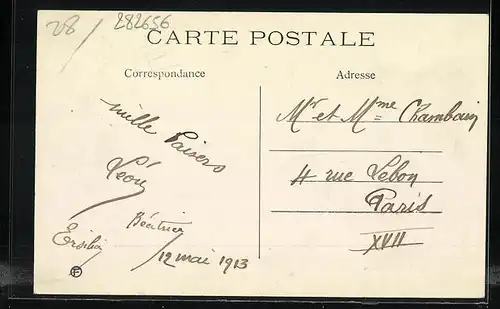 28 / 282656
CARTE POSTALE
Correspondance
Adresse
mille baisers
Léon
Béatrice
12 mai 1913
Mr et Mme Chambain
4 rue Lebon
Paris
XVII
F